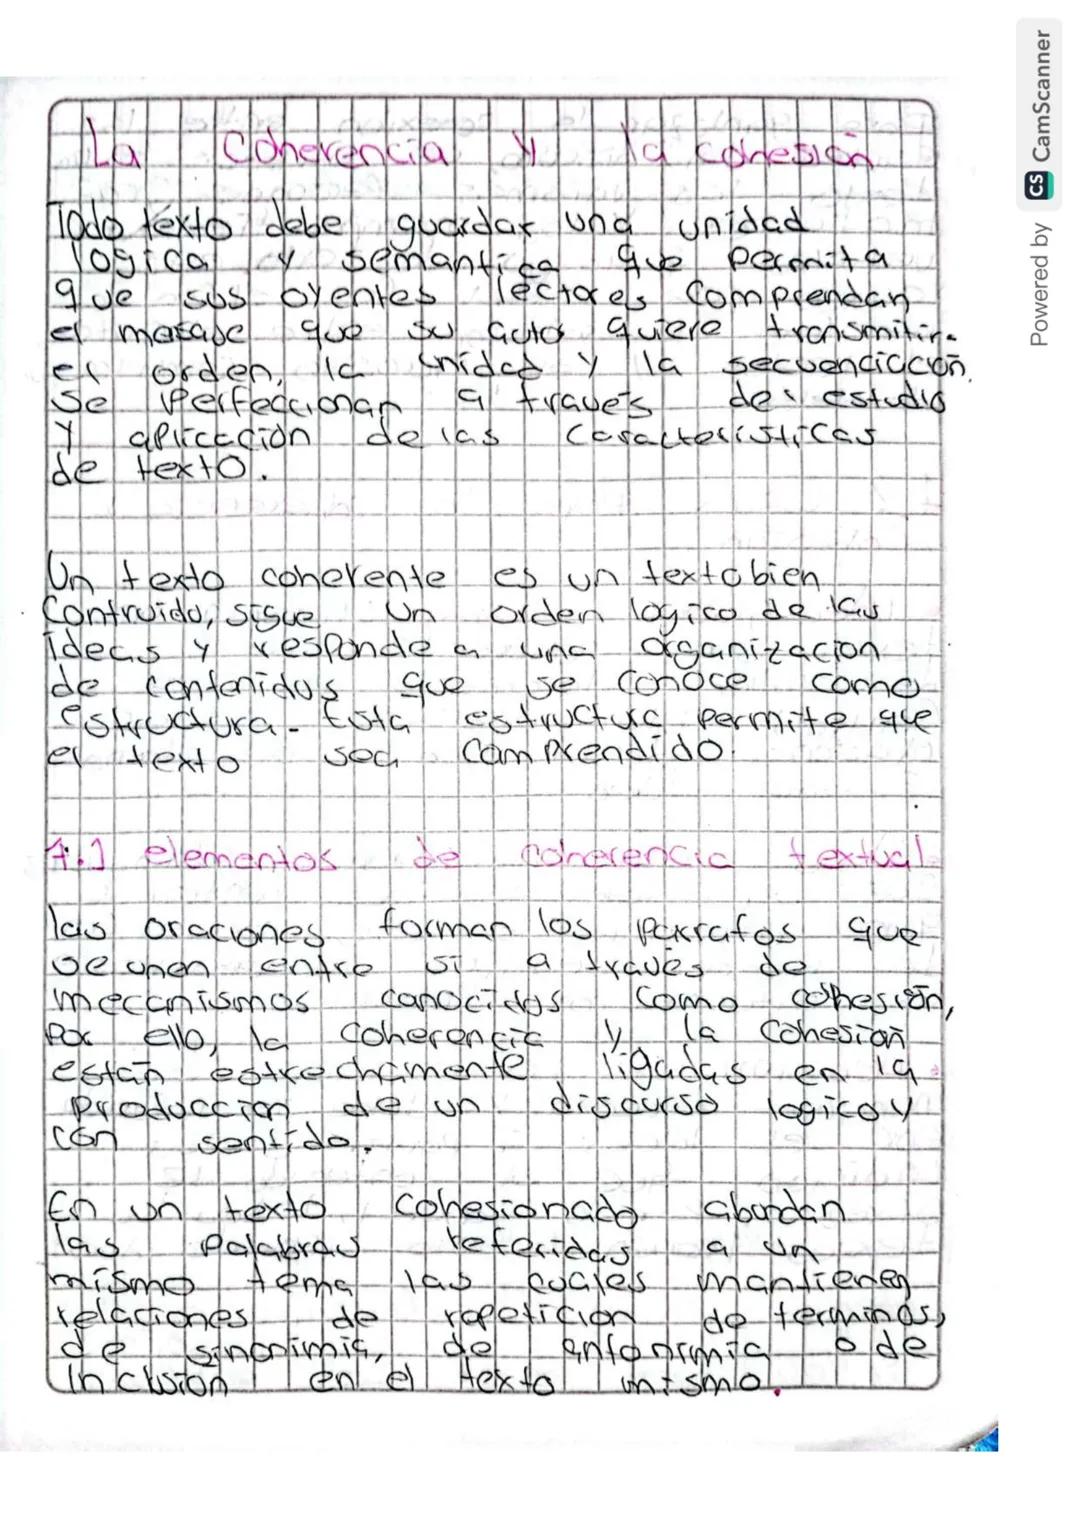 La Coherencia y la cohesión
Todo texto debe guardar una unidad
logica y semantica que permita
que sus oyentes lectores comprendan
el mesaje que su autor quiere transmitir.
el orden, la unidad y la secuenciación
se perfeccionan a través del estudio
y aplicación de las características
de texto.
Un texto coherente es un texto bien
Contruido, sigue un orden logico de las
ideas y responde a una organizacion
de contenidos que se conoce como
estructura. Esta estructura permite que
el texto sea comprendido.
4.1 elementos de coherencia textual
las oraciones forman los parrafos que
se unen entre sí a través de
mecanismos conocidos como cohesión,
Por ello, la coherencia y la cohesión
están estrechamente ligadas en la
Produccion de un discurso logico y
con sentido.
En un texto cohesionado abundan
las palabras referidas a un
mismo tema las cuales mantienen
relaciones de repeticion de terminos,
de sinonimia, de antonimia o de
inclusión en el texto mismo.
Powered by CS CamScanner